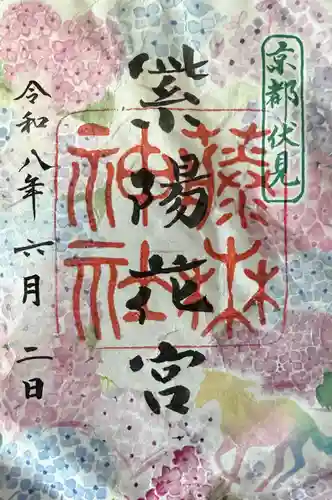 京都 伏見
藤森
神社
紫陽花宮
令和八年 六月 二日